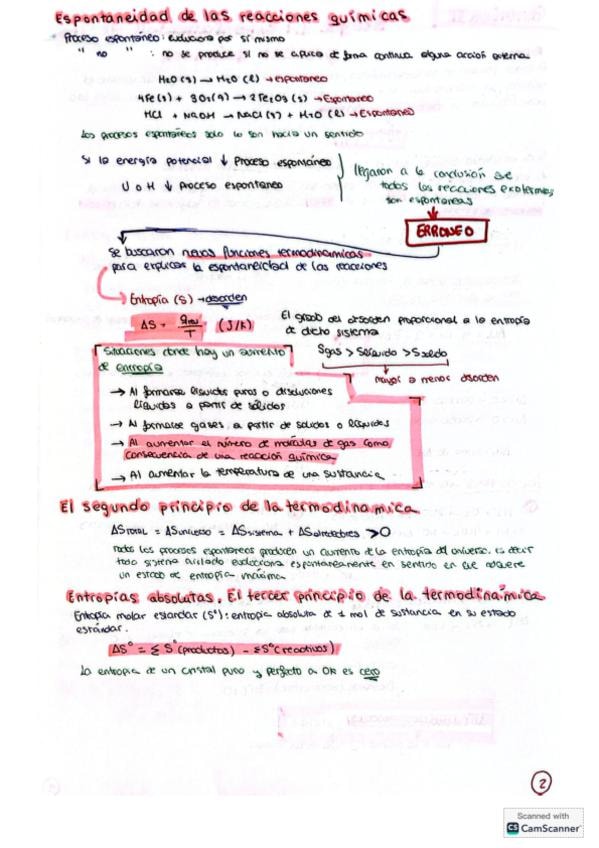 Espontaneidad de las reacciones químicas
• Proceso espontáneo: evoluciona por sí mismo
" no " : no se produce si no se aplica de forma continua alguna acción externa
H2O (s) → H2O (l) → espontaneo
4Fe(s) + 3O2(g) → 2Fe2O3 (s) → Espontaneo
HCl + NaOH → NaCl (s) + H2O (l) → Espontaneo
Los procesos espontáneos solo lo son hacia un sentido
Si la energía potencial ↓ Proceso espontáneo
U o H ↓ Proceso espontaneo
llegaron a la conclusión de
todas las reacciones exotermas
son espontaneas
ERRONEO
Se buscaron nuevas funciones termodinamicas
para explicar la espontaneidad de las reacciones
Entropía (S) → desorden
ΔS = qrev/T (J/K)
El grado del desorden proporcional a la entropía
de dicho sistema
Situaciones donde hay un aumento
de entropía
Sgas > Slíquido > Ssolido
mayor a menor desorden
→ Al formarse líquidos puros o disoluciones
líquidas a partir de sólidos
→ Al formarse gases, a partir de solidos o líquidos
→ Al aumentar el número de moléculas de gas como
consecuencia de una reacción química
→ Al aumentar la temperatura de una sustancia
El segundo principio de la termodinamica
ΔSTOTAL = ΔSuniverso = ΔSsistema + ΔSalrededores > 0
Todos los procesos espontaneos producen un aumento de la entropía del universo. Es decir
todo sistema aislado evoluciona espontaneamente en sentido en el que adquiere
un estado de entropía máxima
Entropías absolutas. El tercer principio de la termodinámica
Entropía molar estandar (S°): entropía absoluta de 1 mol de sustancia en su estado
estándar.
ΔS° = Σ S°(productos) - Σ S°(reactivos)
La entropia de un cristal puro y perfecto a 0K es cero
2
Scanned with
CS CamScanner